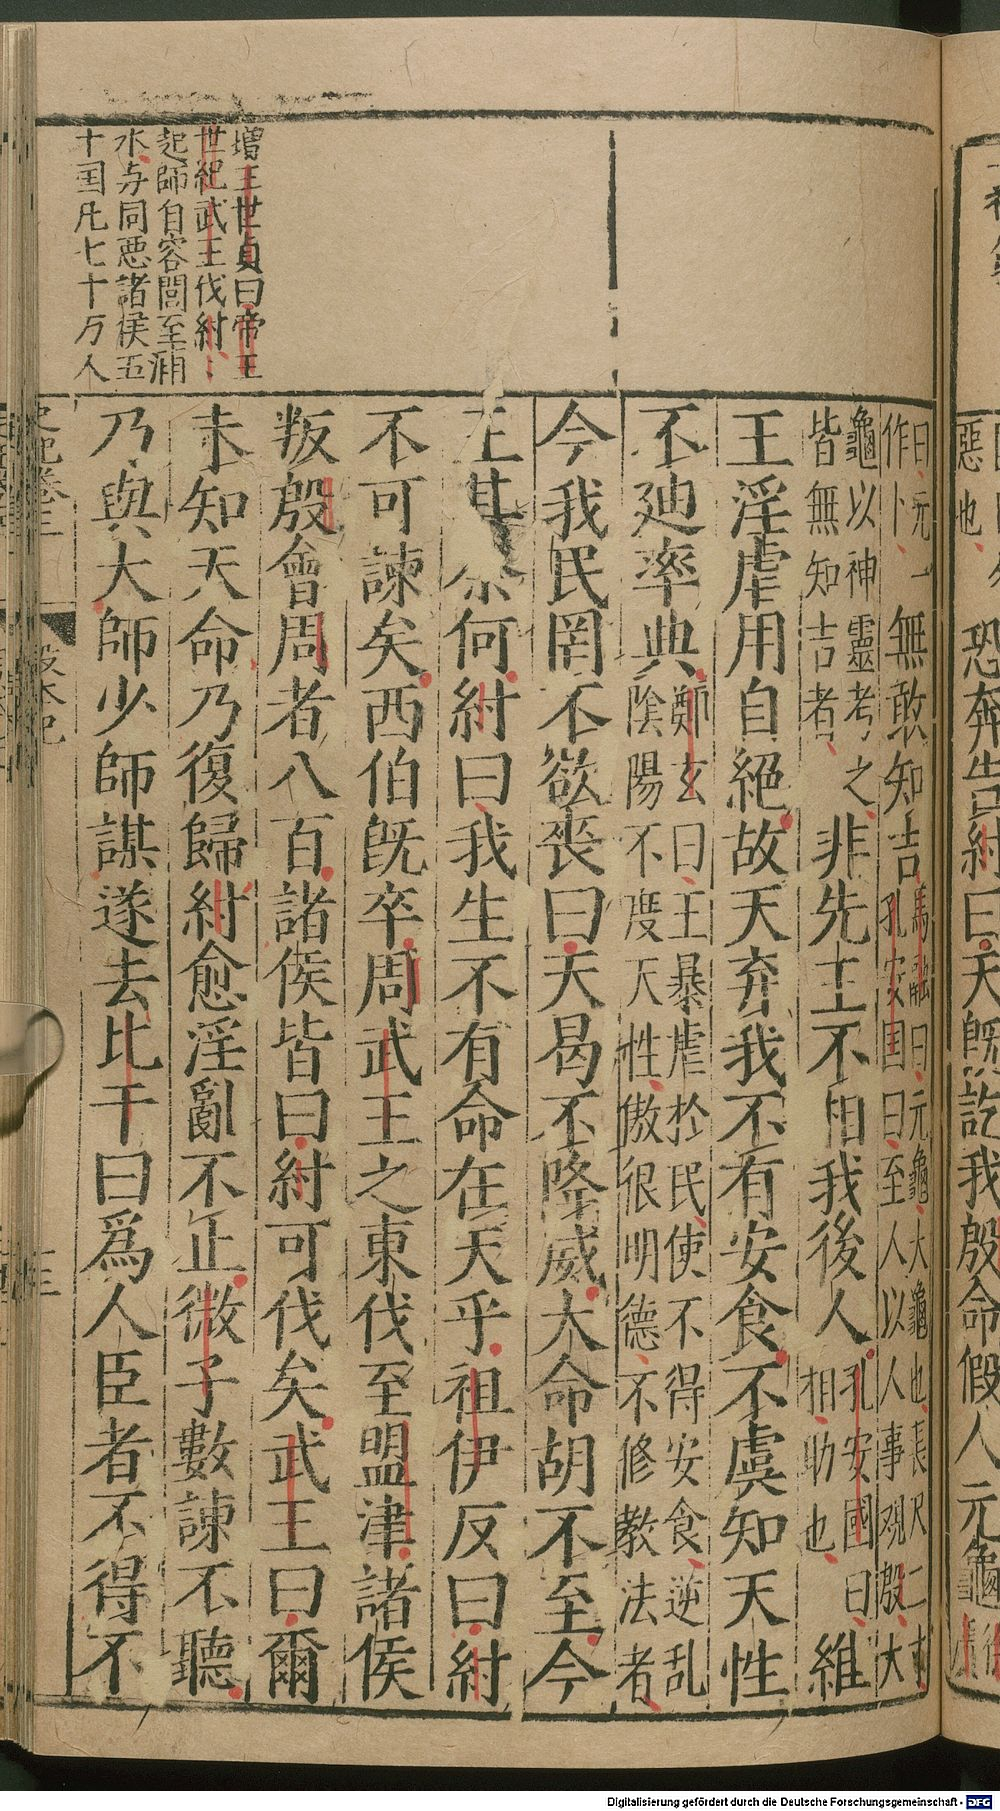 惡也
恐奔告紂紂曰天既訖我殷命假人元龜
曰元一
作卜
無敢知吉
馬融曰元龜大龜也長尺二寸
孔安国曰至人以人事观殷大
龜以神靈考之
皆無知吉者
非先王不相我後人
孔安國曰
相助也
維
王淫虐用自絕故天弃我不有安食不虞知天性
不廸率典
鄭玄曰王暴虐於民使不得安食逆乱
陰陽不度天性傲很明德不修教法者
今我民罔不欲喪曰天曷不降威大命胡不至今
王其奈何紂曰我生不有命在天乎祖伊反曰紂
不可諫矣西伯既卒周武王之東伐至盟津諸侯
叛殷會周者八百諸侯皆曰紂可伐矣武王曰爾
未知天命乃復歸紂愈淫亂不止微子數諫不聽
乃與大師少師謀遂去比干曰爲人臣者不得不
增王世貞曰帝王
世紀武王伐紂紂
起師自容閭至浦
水与同惡諸侯五
十国凡七十万人
史記卷三
殷本紀
十三
Digitalisierung gefördert durch die Deutsche Forschungsgemeinschaft - DFG